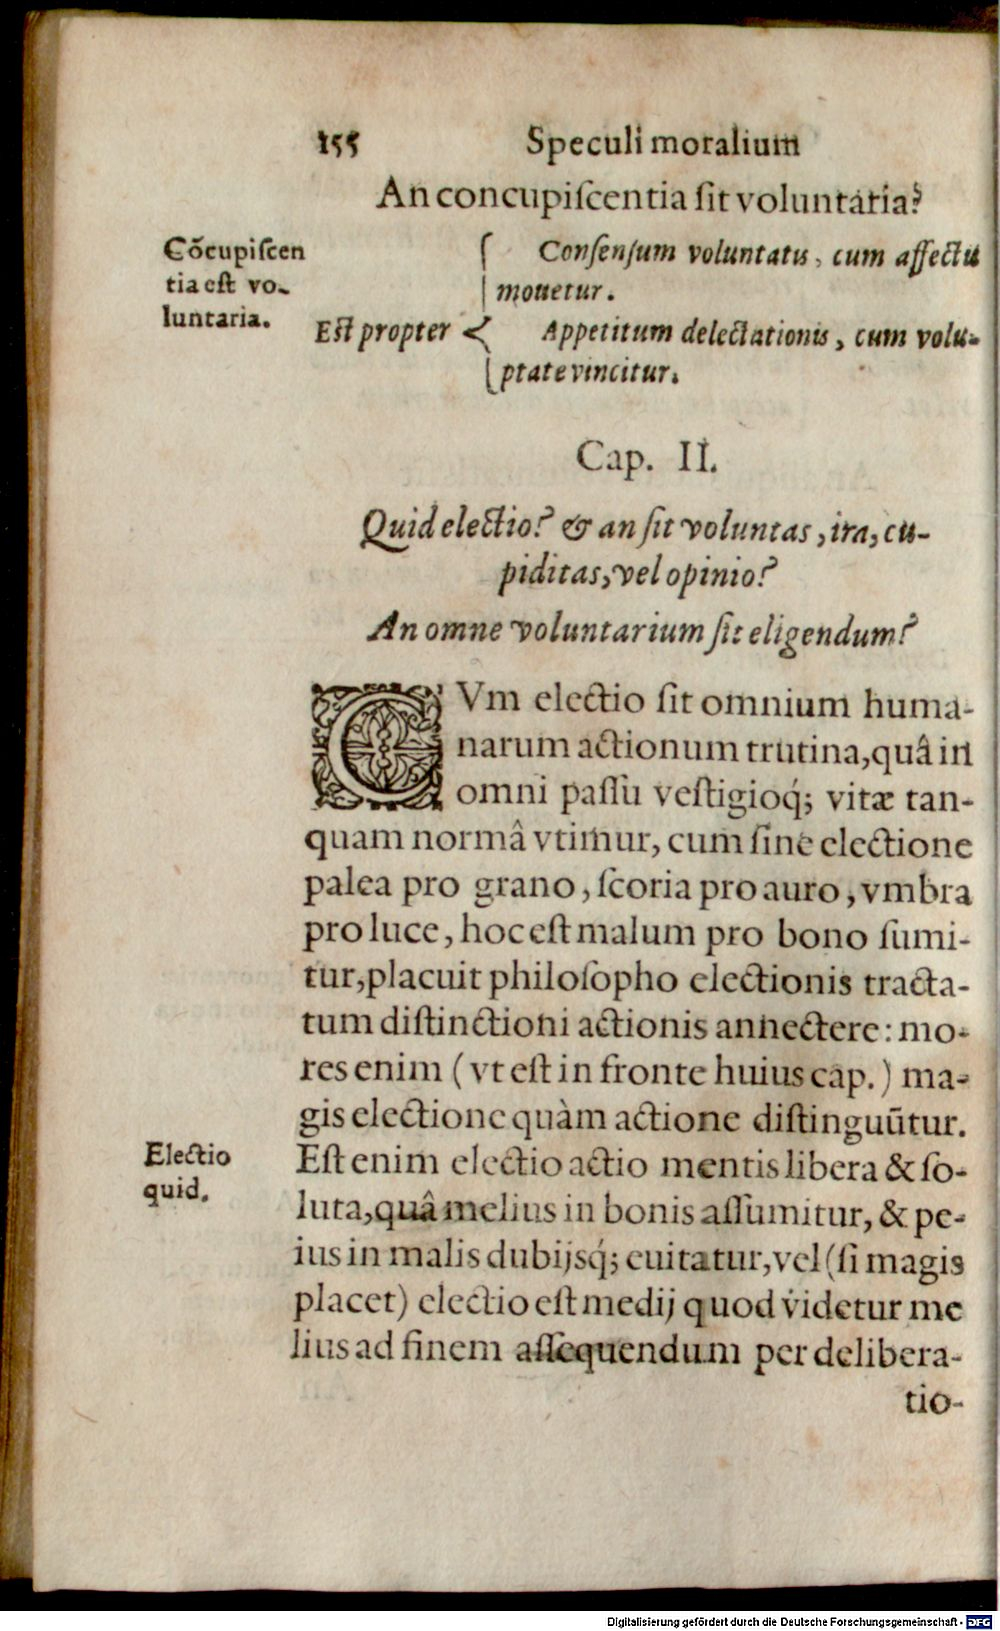 155 Speculi moralium
An concupiſcentia ſit voluntaria?
Cõcupiſcen
tia eſt vo-
luntaria.
Eſt propter
Conſenſum voluntatis, cum affectu
mouetur.
Appetitum delectationis, cum volu-
ptate vincitur.
Cap. II.
Quid electio? & an ſit voluntas, ira, cu-
piditas, vel opinio?
An omne voluntarium ſit eligendum?
CVm electio ſit omnium huma-
narum actionum trutina, quâ in
omni paſſu veſtigioq́; vitæ tan-
quam normâ vtimur, cum ſine electione
palea pro grano, ſcoria pro auro, vmbra
pro luce, hoc eſt malum pro bono ſumi-
tur, placuit philoſopho electionis tracta-
tum diſtinctioni actionis annectere: mo-
res enim (vt eſt in fronte huius cap.) ma-
gis electione quàm actione diſtinguũtur.
Electio
quid.
Eſt enim electio actio mentis libera & ſo-
luta, quâ melius in bonis aſſumitur, & pe-
ius in malis dubijsq́; euitatur, vel (ſi magis
placet) electio eſt medij quod videtur me
lius ad finem aſſequendum per delibera-
tio-
Digitalisierung gefördert durch die Deutsche Forschungsgemeinschaft - DFG